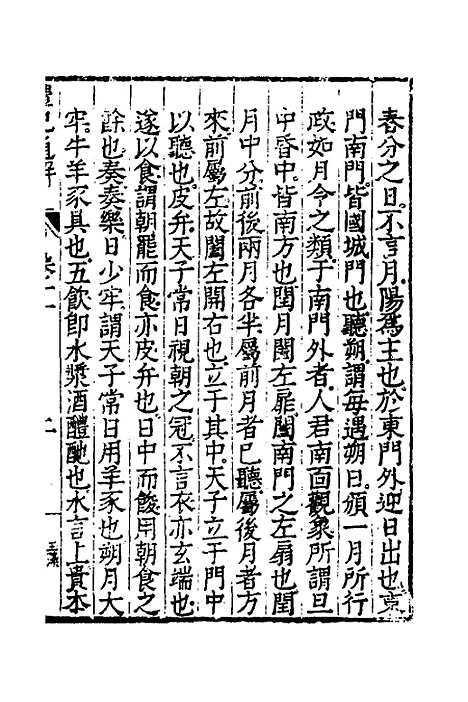 春分之日不言月陽爲主也於東門外迎日出也東
門南門皆國城門也聽朔謂每遇朔日頒一月所行
政如月令之類于南門外者人君南面觀象所謂旦
中昏中皆南方也閏月闔左扉闔南門之左扇也閏
月中分前後兩月各半屬前月者已聽屬後月者方
來前屬左故闔左開右也立于其中天子立于門中
以聽也皮弁天子常日視朝之冠不言衣亦玄端也
遂以食謂朝罷而食亦皮弁也日中而餕用朝食之
餘也奏奏樂日少牢謂天子常日用羊豕也朔月大
牢牛羊豕具也五飲即水漿酒醴酏也水言上貴本
禮記通解 卷十一 二 玉藻